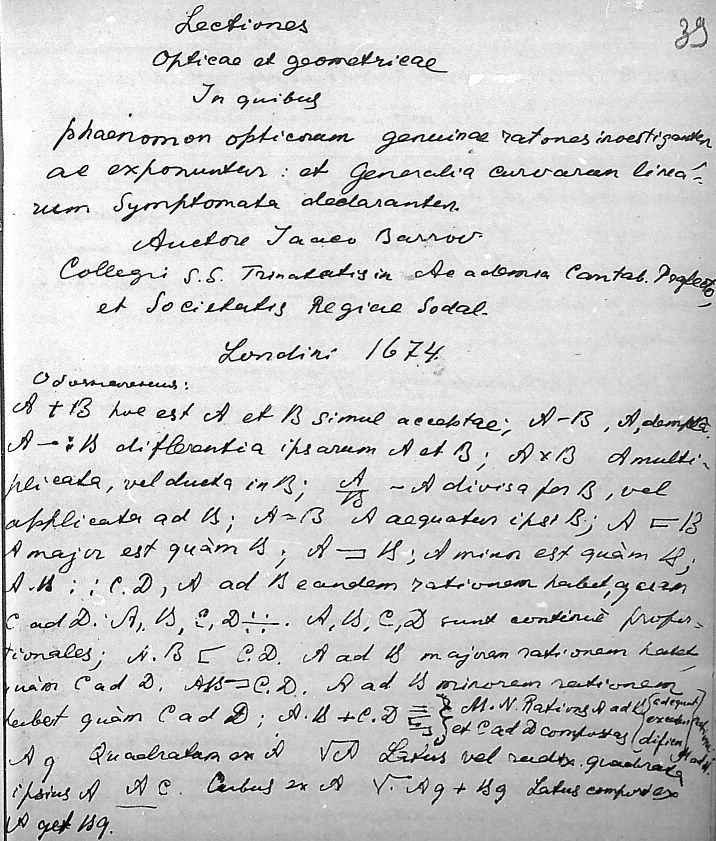 39
Lectiones
Opticae et geometricae
In quibus
phaenomon opticorum genuinae rationes investigantur
ac exponuntur: et Generalia curvarum linea-
rum Symptomata declarantur.
Auctore Isaaco Barrow
Collegii S.S. Trinitatis in Academia Cantab. Prefecto,
et Societatis Regiae Sodal.
Londini 1674
Обозначения:
A + B hoc est A et B simul acceptae; A - B, A, dempta
A -: B differentia ipsarum A et B; A × B A multi-
plicata, vel ducta in B; A/B - A divisa per B, vel
applicata ad B; A = B A aequatur ipsi B; A ⊏ B
A major est quàm B; A ⊐ B; A minor est quàm B;
A.B :: C.D, A ad B eandem rationem habet, quam
C ad D. A, B, C, D ∺. A, B, C, D sunt continuè propor-
tionales; A.B ⊏ C.D. A ad B majorem rationem habet
quàm C ad D. A.B ⊐ C.D. A ad B minorem rationem
habet quàm C ad D; A.B + C.D = ⊏ ⊐ } M.N. Rations A ad B et C ad D compostas
A q Quadratum ex A √A Latus vel radix quadrata
ipsius A A C. Cubus ex A √. Aq + Bq Latus compos ex
A q et Bq.